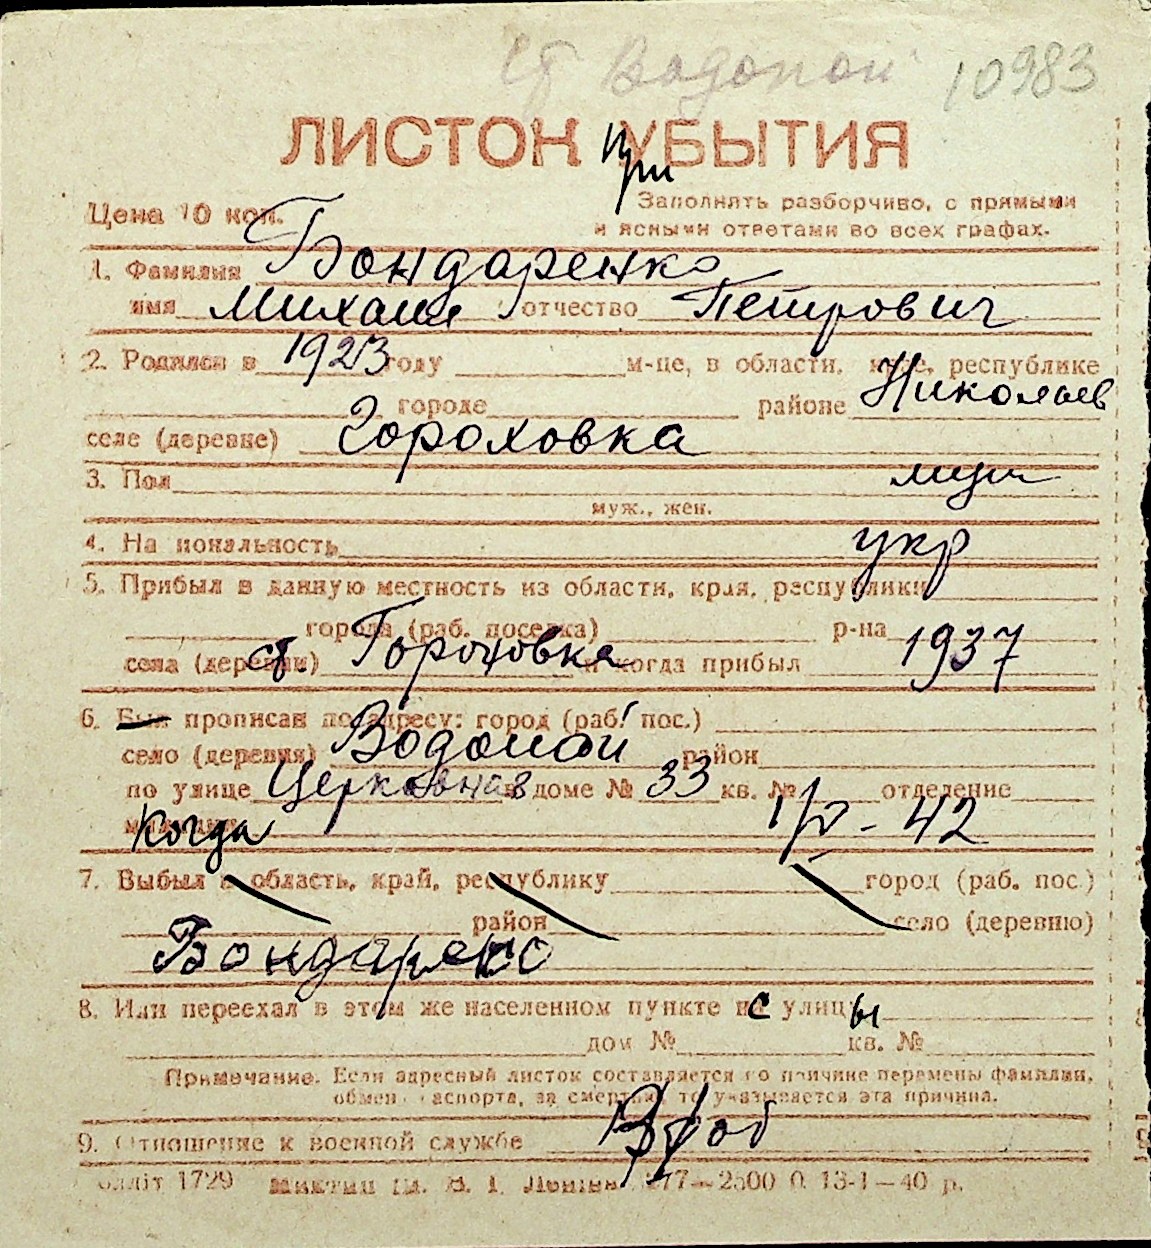 ст Водопой 10983
ЛИСТОК УБЫТИЯ
при
Цена 10 коп.
Заполнять разборчиво, с прямыми
и ясными ответами во всех графах.
1. Фамилия Бондаренко
имя Михаил отчество Петрович
2. Родился в 1923 году м-це, в области, крае, республике
городе районе Николаев
селе (деревне) Гороховка
3. Пол муж
муж., жен.
4. На иональность укр
5. Прибыл в данную местность из области, края, республики
города (раб. поселка) р-на
села (деревни) ст. Гороховка и когда прибыл 1937
6. Был прописан по адресу: город (раб. пос.)
село (деревня) Водопой район
по улице Церковная в доме № 33 кв. № отделение
милиции Когда 1/V - 42
7. Выбыл в область, край, республику город (раб. пос.)
район село (деревню)
Бондаренко
8. Или переехал в этом же населенном пункте с улицы
дом № кв. №
Примечание. Если адресный листок составляется по причине перемены фамилии,
обмена паспорта, за смертью, то указывается эта причина.
9. Отношение к военной службе
1729 2500 13-1—40 р.